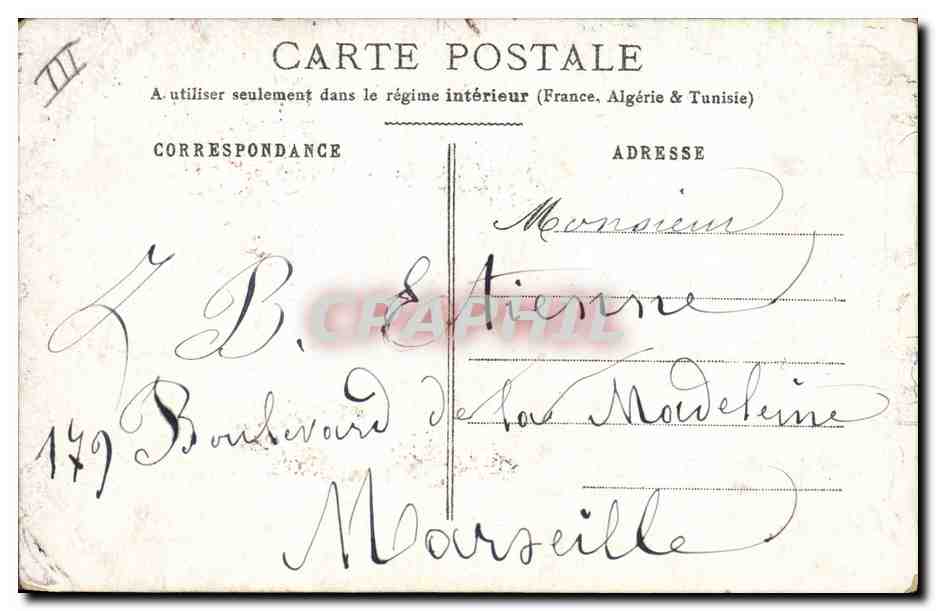 III
CARTE POSTALE
A utiliser seulement dans le régime intérieur (France, Algérie & Tunisie)
CORRESPONDANCE
ADRESSE
Monsieur
B. Etienne
CPAPHIL
179 Boulevard de la Madeleine
Marseille